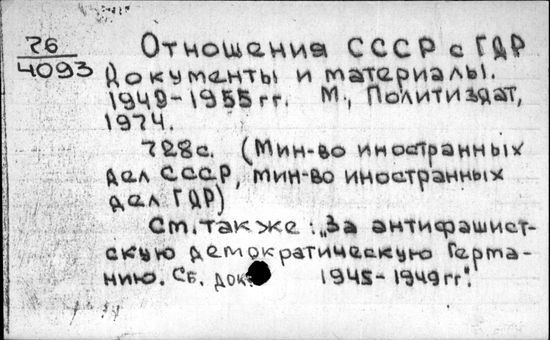 76
4093
Отношения СССР с ГДР
Документы и материалы.
1949-1955 гг. М., Политиздат,
1974.
728с. (Мин-во иностранных
дел СССР, мин-во иностранных
дел ГДР)
См. также: „За антифашист-
скую демократическую Герма-
нию. Сб. док. 1945-1949гг".